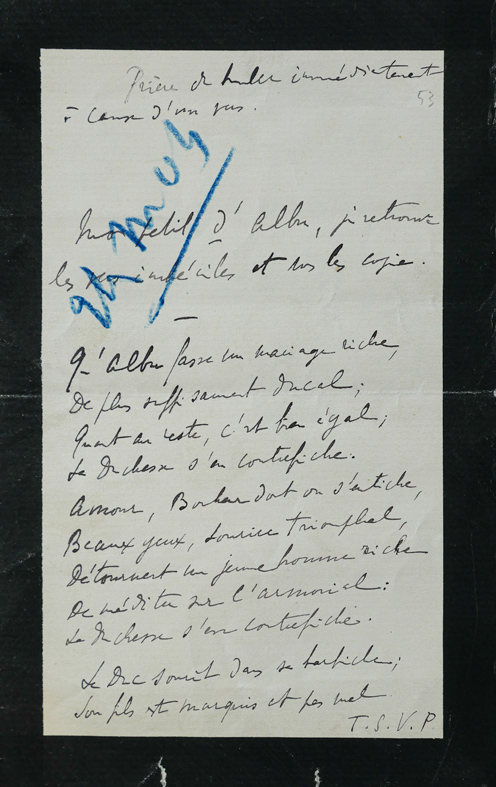 Prière de brûler immédiatement
à cause d'un gus.
53
24 nov 04
Mon petit d'Albu, je retrouve
les vers imbéciles et vous les copie.
Qu'Albu fasse un mariage riche,
De plus suffisamment ducal;
Quant au reste, c'est bien égal;
La Duchesse s'en contrefiche.
Amour, Bonheur dont on s'entiche,
Beaux yeux, sourire triomphal,
Détournent un jeune homme riche
De méditer sur l'armorial:
La Duchesse s'en contrefiche.
Le Duc sourit dans sa barbiche;
Son fils est marquis et pas mal
T.S.V.P.